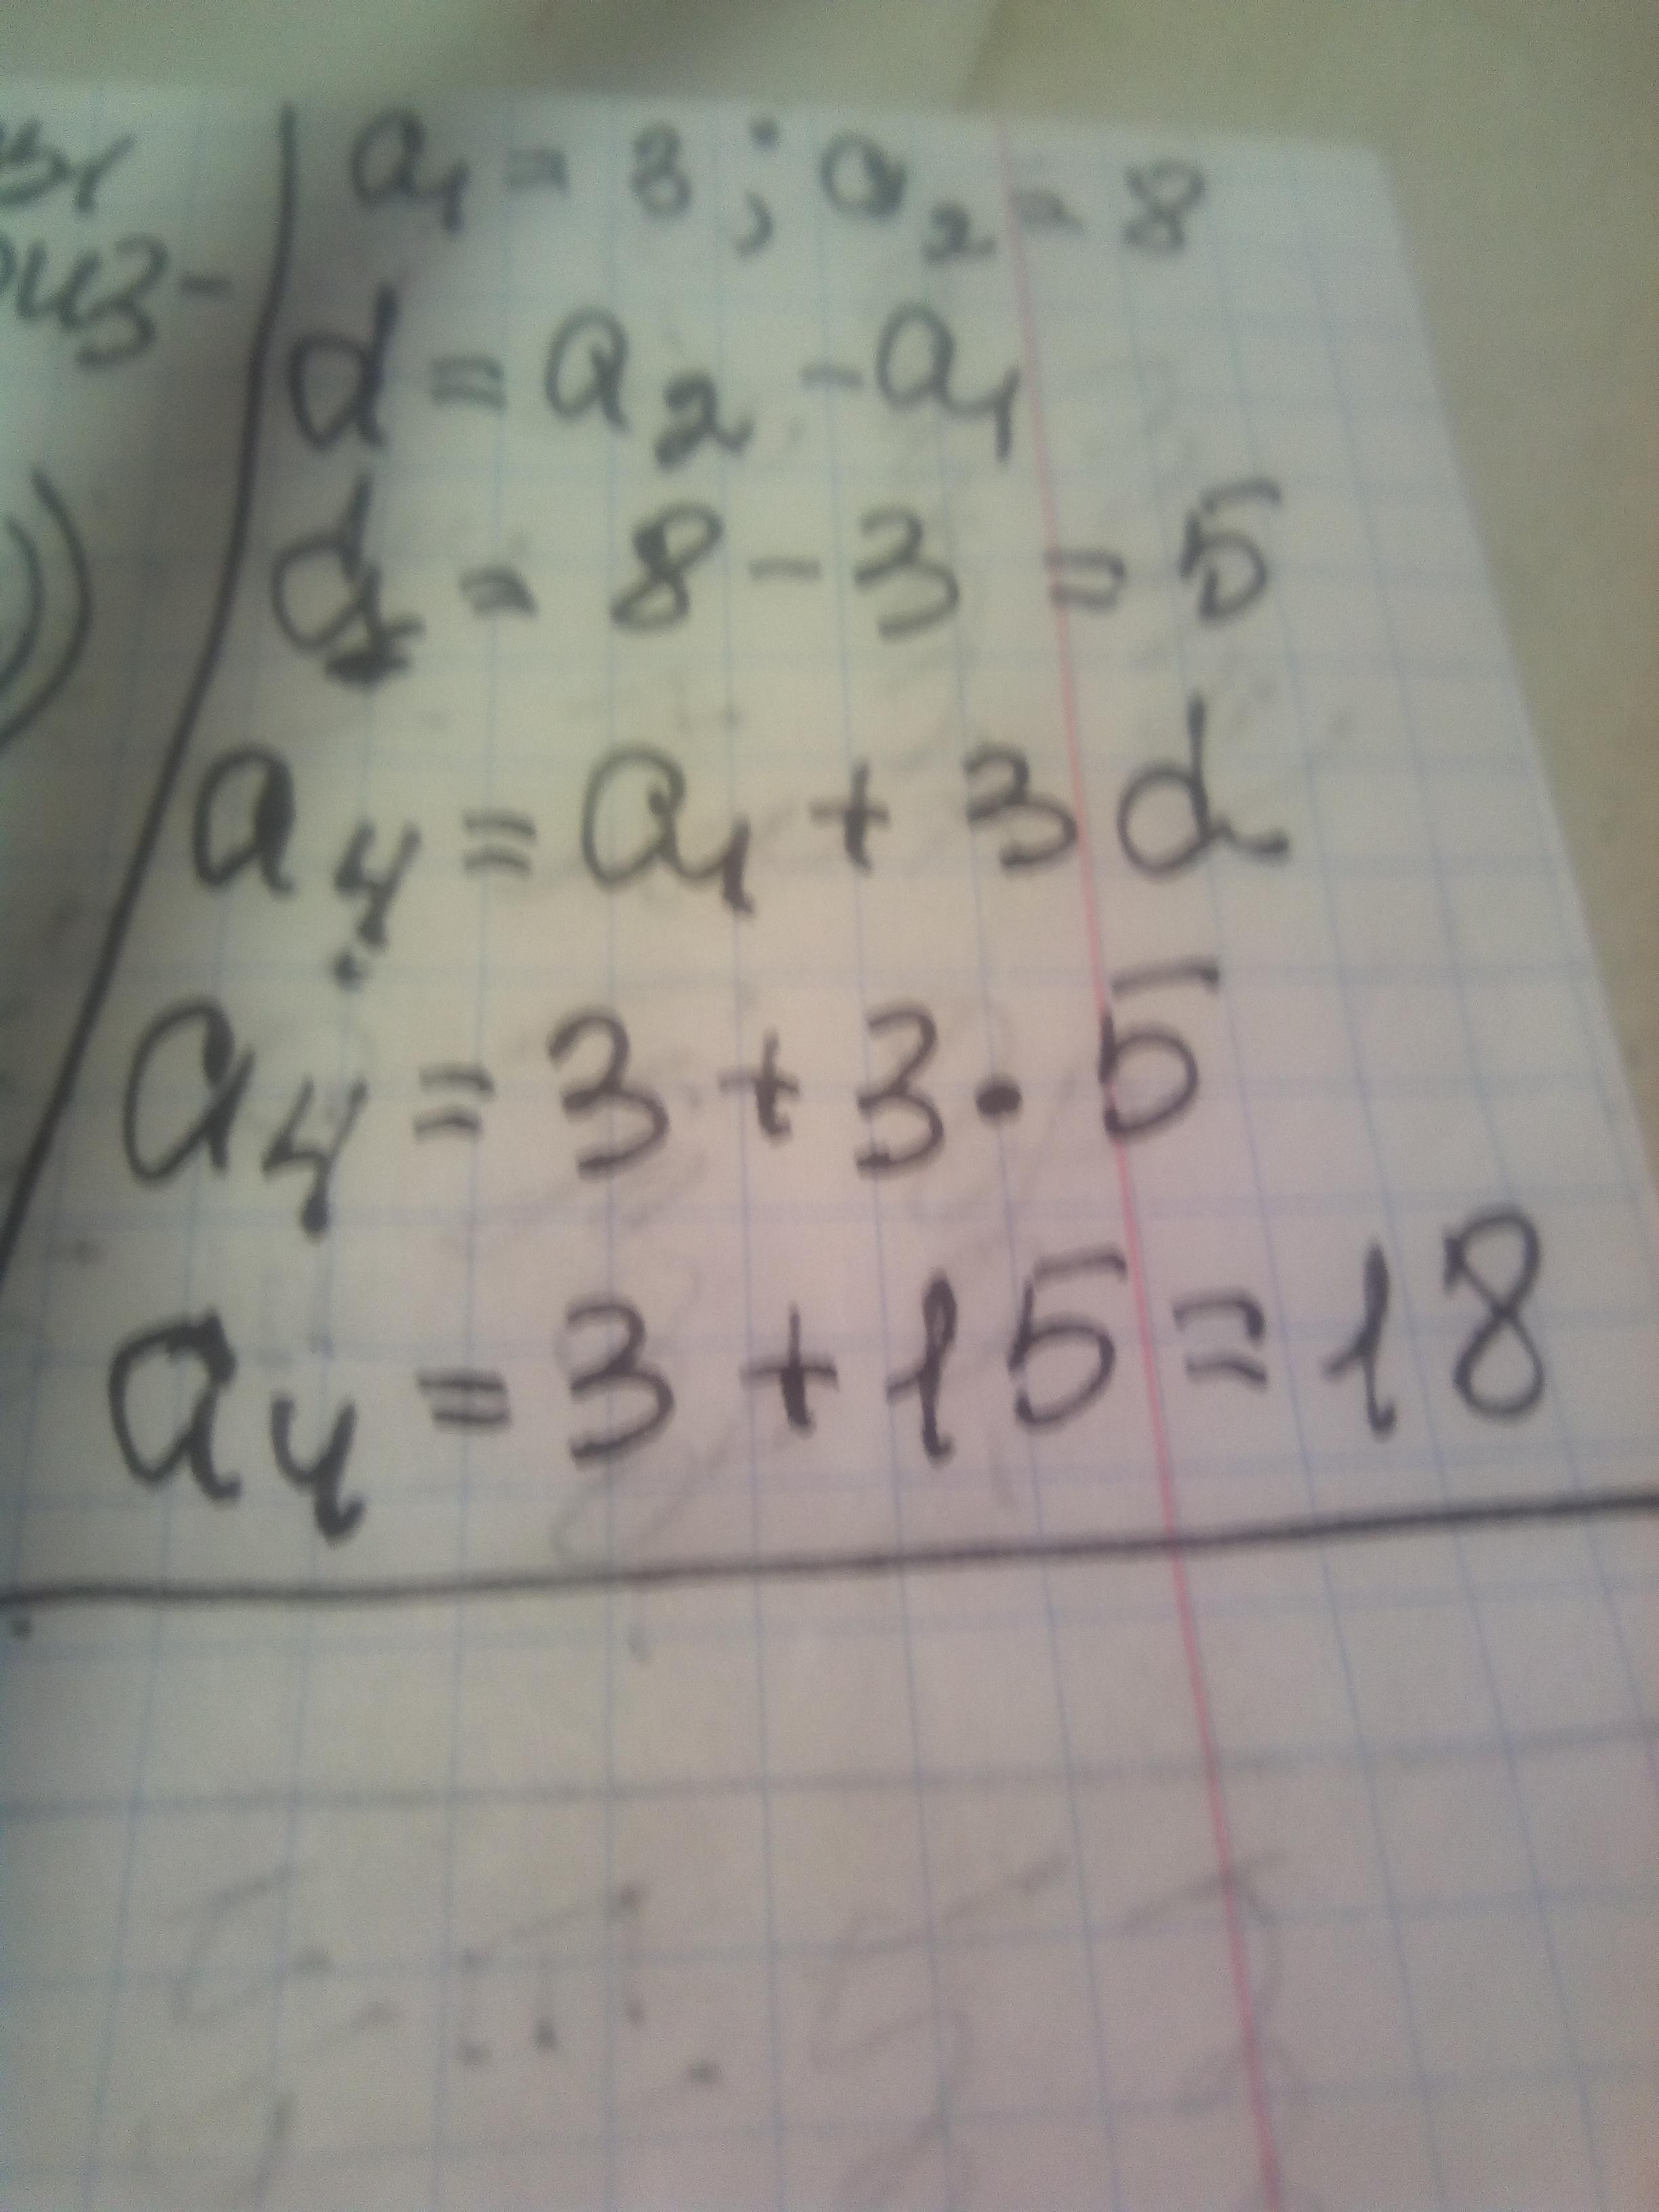 a₁ = 3; a₂ = 8
d = a₂ - a₁
d = 8 - 3 = 5
a₄ = a₁ + 3d
a₄ = 3 + 3 · 5
a₄ = 3 + 15 = 18